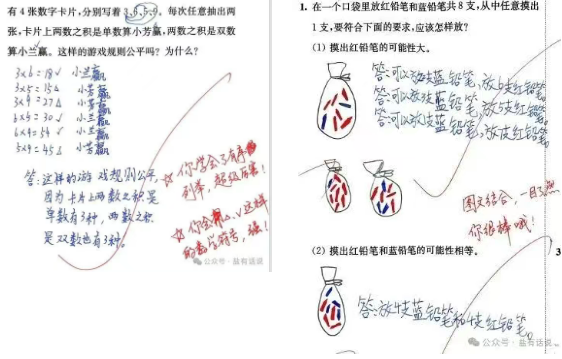 有4张数字卡片,分别写着3,6,5,9。每次任意抽出两
张,卡片上两数之积是单数算小芳赢,两数之积是双数
算小兰赢。这样的游戏规则公平吗?为什么?
3×6=18√ 小兰赢
3×5=15△ 小芳赢
3×9=27△ 小芳赢
5×6=30√ 小兰赢
6×9=54√ 小兰赢
5×9=45△ 小芳赢
答:这样的游戏规则公平
因为卡片上两数之积是
单数有3种,两数之积
是双数也有3种。
☆你学会了有序
列举,超级厉害!
☆你会用△、√这样
的数学符号,强!
公众号·益有话说
1. 在一个口袋里放红铅笔和蓝铅笔共8支,从中任意摸出
1支,要符合下面的要求,应该怎样放?
(1) 摸出红铅笔的可能性大。
答:可以放2支蓝铅笔,放6支红铅笔。
答:可以放3支蓝铅笔,放5支红铅笔。
答:可以放1支蓝铅笔,放7支红铅笔。
图文结合,一目了然
你很棒哦!
(2) 摸出红铅笔和蓝铅笔的可能性相等。
3
答:放4支蓝铅笔和4支红铅笔。
公众号·益有话说